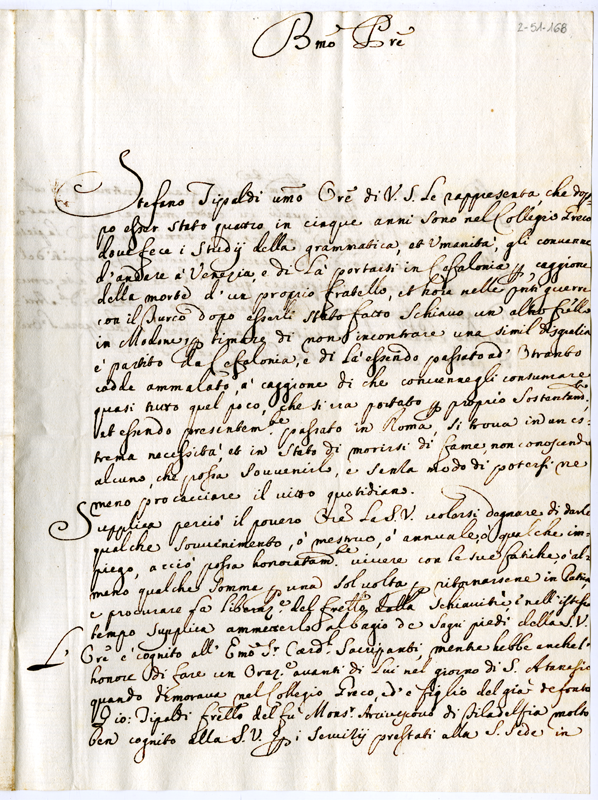 2-51-168
Bmo Pre
Stefano Tipaldi umo Ore di V.S. Le rappresenta, che dop-
po esser stato quattro in cinque anni sono nel Collegio Greco
dove fece i Studij della grammatica, et Umanità, gli convenne
d'andare a' Venezia, e di là portarsi in Cefalonia p caggione
della morte d'un proprio fratello, et hora nelle pnti guerre
con il Turco dopo esserli stato fatto Schiavo un altro frello
in Modone, p timore di non incontrare una simil disgratia
è partito da Cefalonia, e di là essendo passato ad Otranto
cadde ammalato, a' caggione di che convennegli consumare
quasi tutto quel poco, che si era portato p proprio Sostentamto,
et essendo presentemte passato in Roma, si trova in un es-
trema necessità, et in stato di morirsi di fame, non conoscendo
alcuno, che possa Souvenirlo, e senza modo di potersi ne
meno procacciare il vitto quotidiano.
Supplica perciò il povero Ore La S.V. volersi degnare di darle
qualche Souvenimento, o' mestruo, o' annuale, o' qualche im-
piego, acciò possa honoratamte vivere con le sue fatiche, o' al-
meno qualche Somma p una sol volta p ritornarsene in Patria,
e procurare la liberazne del frello dalla Schiavitù: e nell'istesso
tempo supplica ammetterlo al bagio de Sagri piedi della S.V.
L'Ore è cognito all'Emo Sr Card. Sacripanti, mentre hebbe anche l'
honore di fare un Orazne avanti di Lui nel giorno di S. Atanasio
quando dimorava nel Collegio Greco, ed è figlio del già defonto
Gio: Tipaldi frello del fu Monsr Arcivescovo di Filadelfia molto
ben cognito alla S.V. p i Servitij prestati alla S. Sede in